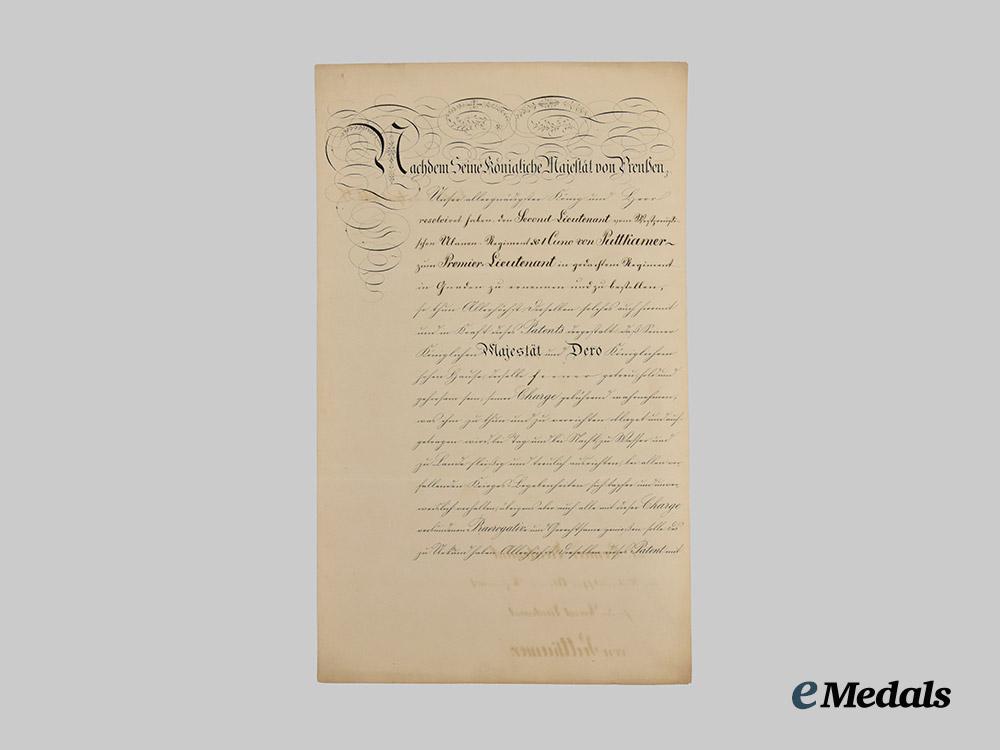 Nachdem Seine Königliche Majestät von Preußen,
Unser allergnädigster König und Herr
resolvirt haben, den Second-Lieutenant vom Westpreußi-
schen Ulanen-Regiment № 1 Cuno von Puttkamer
zum Premier-Lieutenant in gedachtem Regiment
in Gnaden zu ernennen und zu bestellen,
so thun Allerhöchst Dieselben solches auch hiermit
und in Kraft dieses Patents dergestalt, daß Seiner
Königlichen Majestät und Dero Königlichem
Hohen Hause, derselbe ferner getreu, hold und
gehorsam sein, seiner Charge gebührend wahrnehmen,
was ihm zu thun und zu verrichten obliegt und auf-
getragen wird, bei Tag und bei Nacht, zu Wasser und
zu Lande fleißig und treulich ausrichten, bei allen vor-
fallenden Krieges-Begebenheiten sich tapfer und unver-
weislich verhalten, übrigens aber auch alle mit dieser Charge
verbundenen Praerogative und Gerechtsame genießen solle. Das
zu Urkund haben Allerhöchst Dieselben dieses Patent mit
eMedals